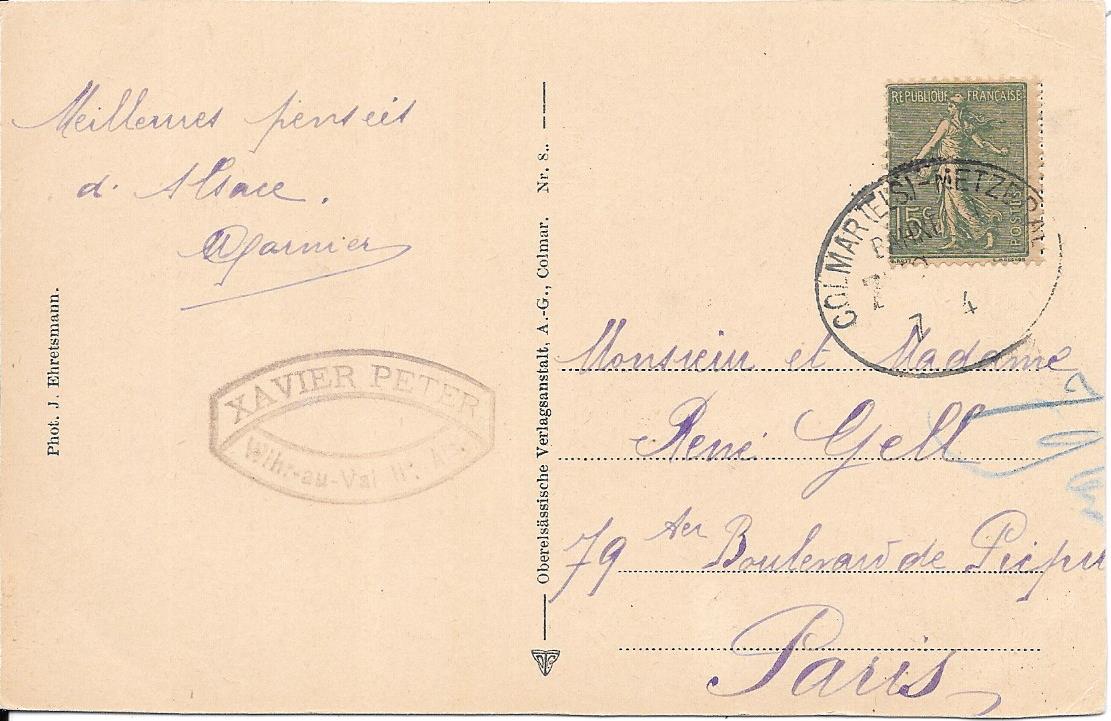 Meilleures pensées
d'Alsace.
Garnier
Phot. J. Ehretsmann.
XAVIER PETER
Wihr-au-Val
Oberelsässische Verlagsanstalt, A.-G., Colmar. Nr. 8..
REPUBLIQUE FRANÇAISE
15c
POSTES
COLMAR(ELS)-METZERAL
7 4
Monsieur et Madame
René Gell
79 Boulevard de Picpu
Paris